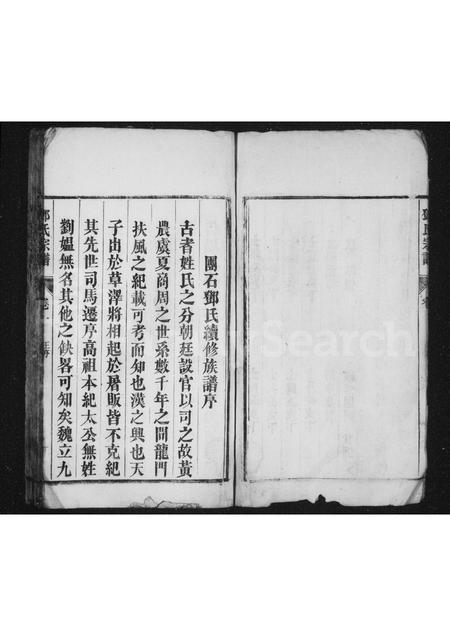 團石鄧氏續修族譜序
古者姓氏之分朝廷設官以司之故黃
農虞夏商周之世系數千年之間龍門
扶風之紀載可考而知也漢之興也天
子出於草澤將相起於屠販皆不克紀
其先世司馬遷序高祖本紀太公無姓
劉媼無名其他之缺畧可知矣魏立九
鄧氏宗譜
鄧氏宗譜
Search